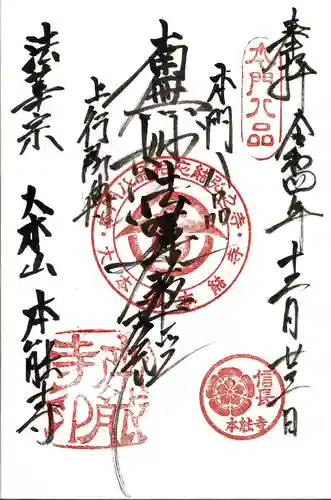 奉拝 令和四年 十二月 廿三日
本門八品
本門八品
南無妙法蓮華経
上行所傳
法華宗 大本山 本能寺
信長
本能寺